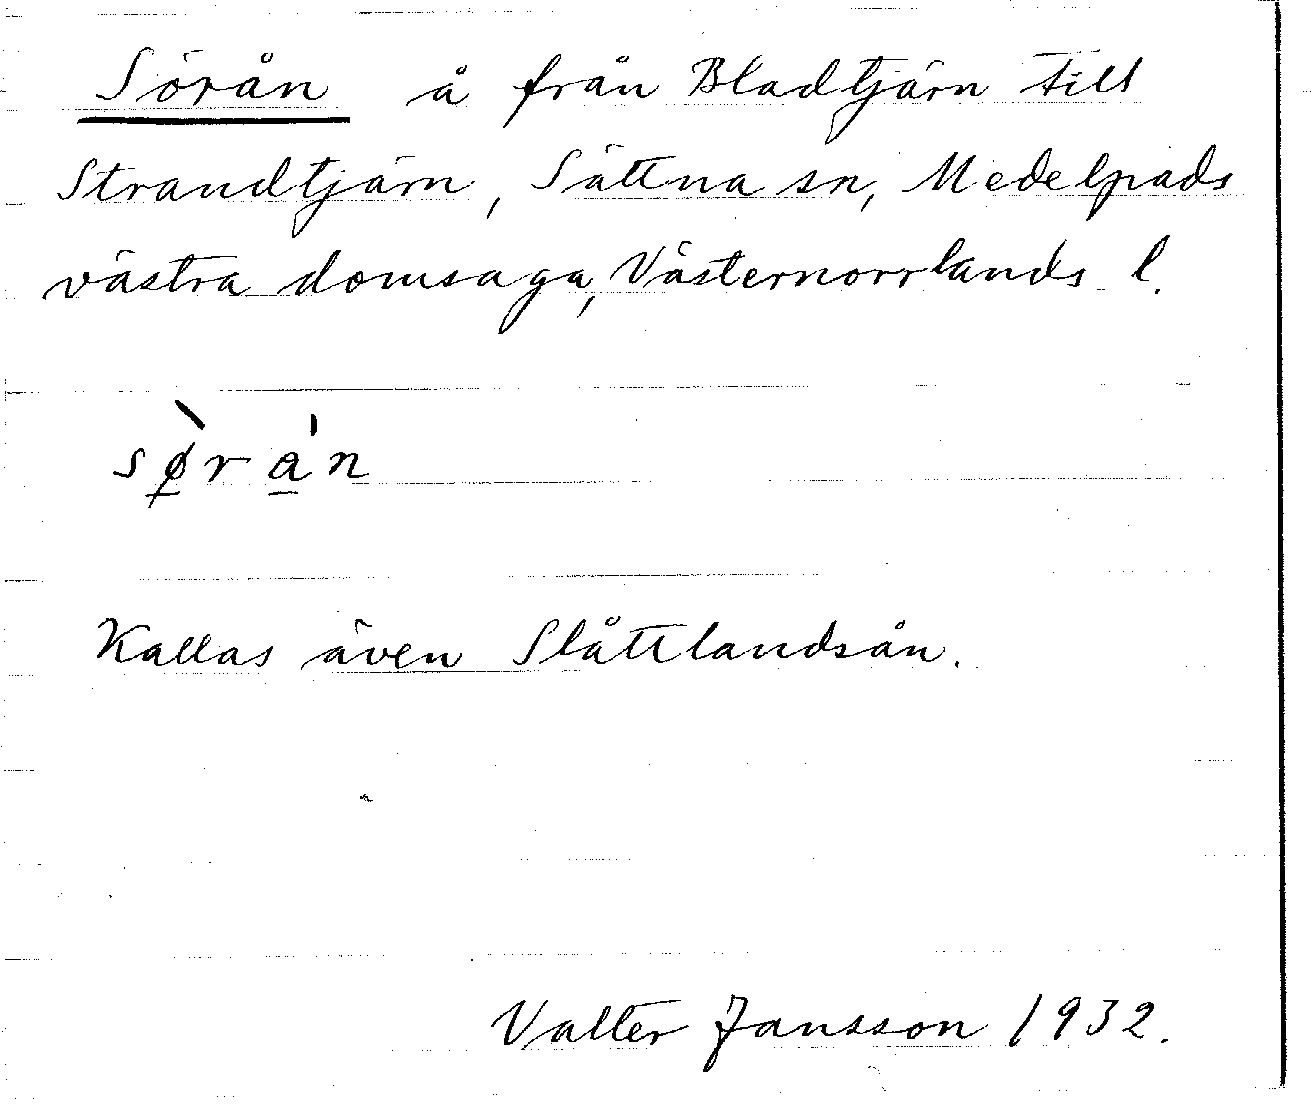 Sörån å från Bladtjärn till
Strandtjärn, Sättna sn, Medelpads
västra domsaga, Västernorrlands l.
sø̱̀ra̱̍n
Kallas även Slåttlandsån.
Valter Jansson 1932.